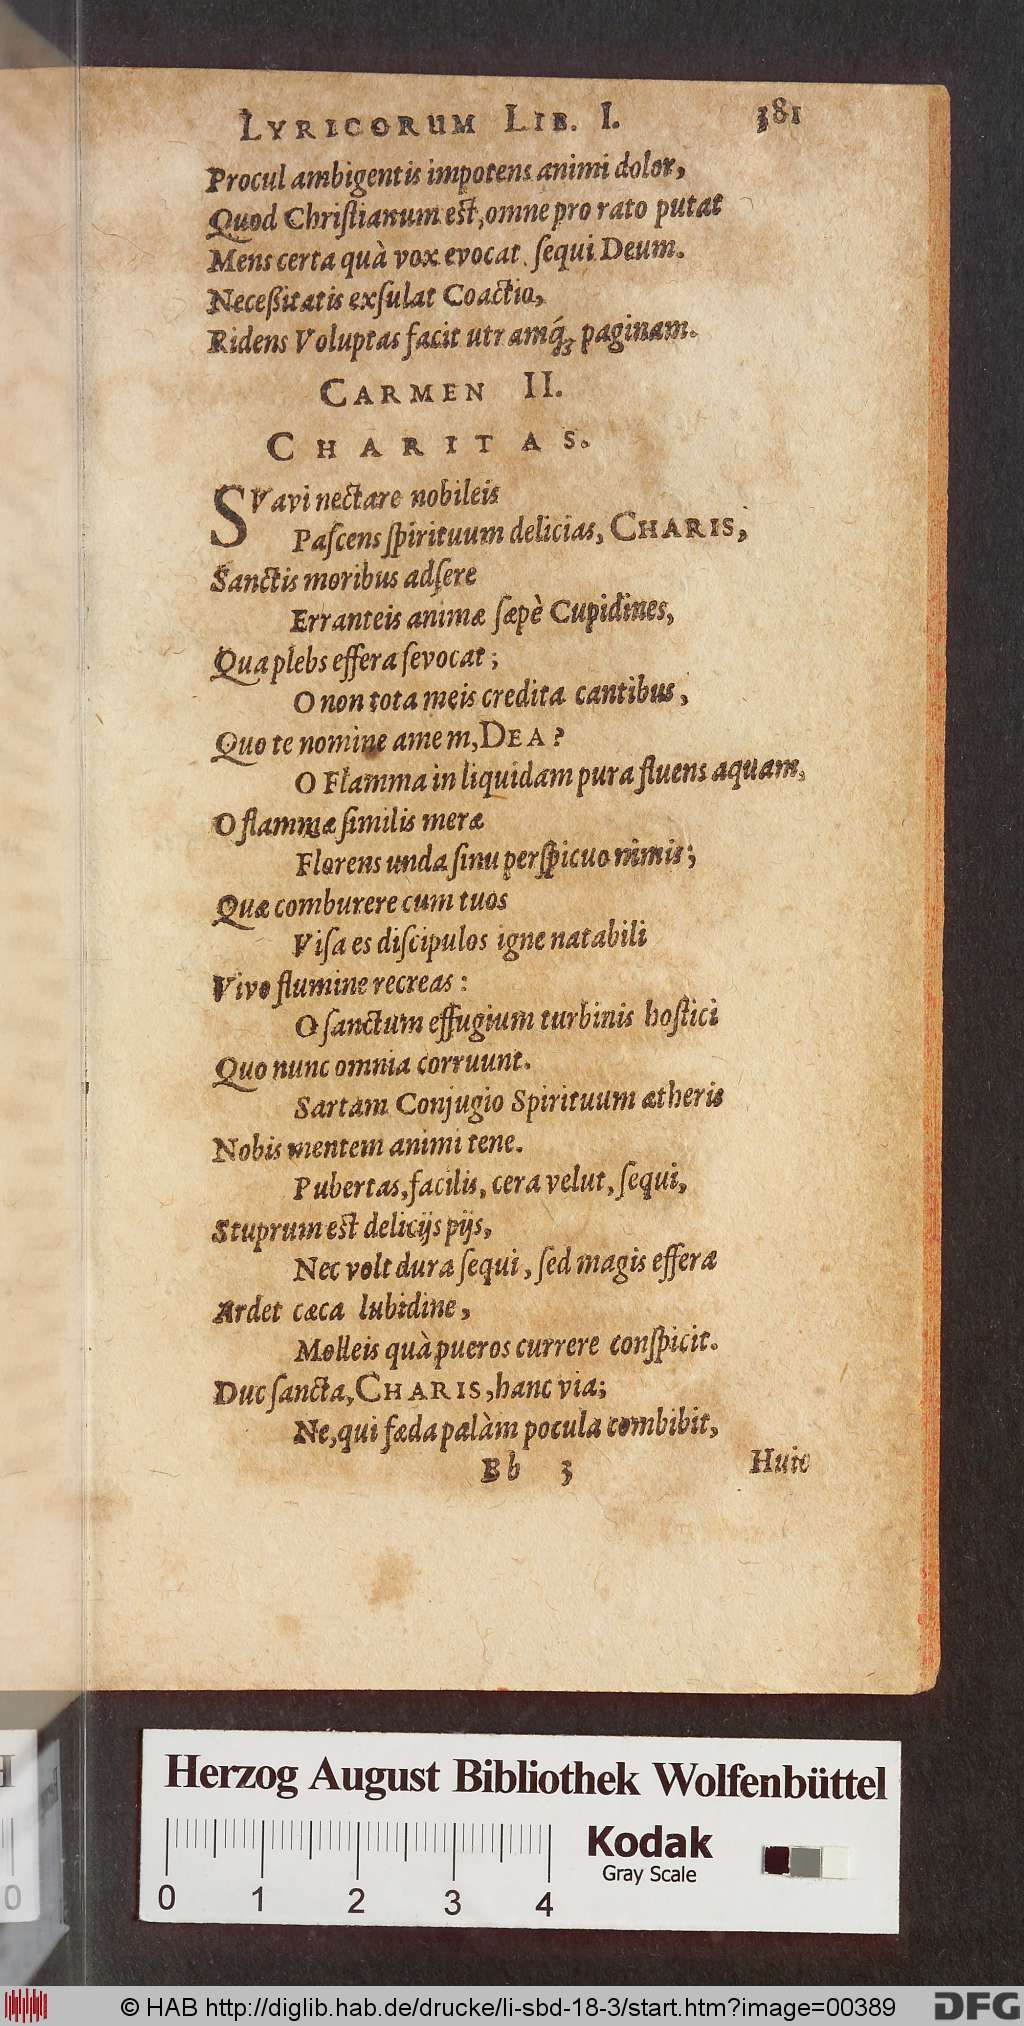 LYRICORUM LIB. I. 381
Procul ambigentis impotens animi dolor,
Quod Chriſtianum est, omne pro rato putat
Mens certa quà vox evocat ſequi Deum.
Neceßitatis exſulat Coactio,
Ridens Voluptas facit utramq́ꝫ paginam.
CARMEN II.
CHARITAS.
SVavi nectare nobileis
Paſcens ſpirituum delicias, CHARIS,
Sanctis moribus adſere
Erranteis animæ ſæpè Cupidines,
Qua plebs effera ſevocat;
O non tota meis credita cantibus,
Quo te nomine amem, DEA?
O Flamma in liquidam pura fluens aquam,
O flammæ ſimilis meræ
Florens unda ſinu perſpicuo nimis;
Quæ comburere cum tuos
Viſa es diſcipulos igne natabili
Vivo flumine recreas:
O ſanctum effugium turbinis hoſtici
Quo nunc omnia corruunt.
Sartam Conjugio Spirituum ætheris
Nobis mentem animi tene.
Pubertas, facilis, cera velut, ſequi,
Stuprum est delicijs pijs,
Nec volt dura ſequi, ſed magis efferæ
Ardet cæca lubidine,
Molleis quà pueros currere conſpicit.
Duc ſancta, CHARIS, hanc via;
Ne, qui fæda palàm pocula combibit,
Bb 3 Huic
Herzog August Bibliothek Wolfenbüttel
Kodak
Gray Scale
0 1 2 3 4
0
© HAB http://diglib.hab.de/drucke/li-sbd-18-3/start.htm?image=00389
DFG